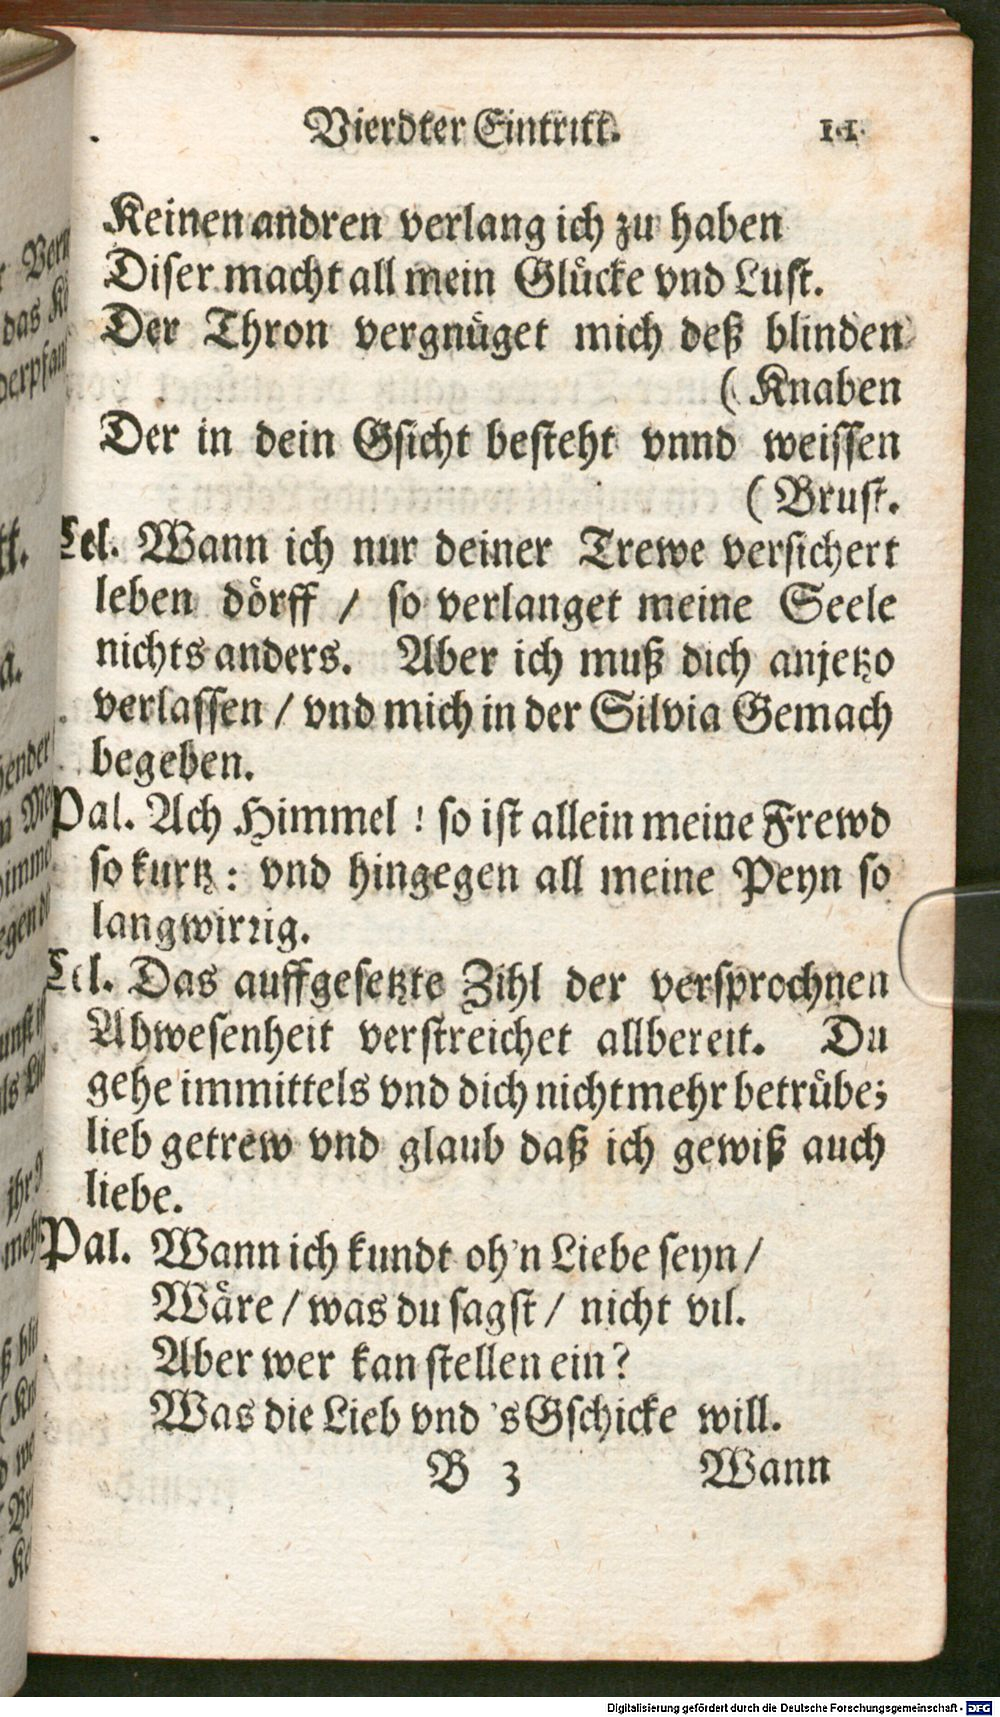 Vierdter Eintritt. 11.
Keinen andren verlang ich zu haben
Diser macht all mein Glücke vnd Lust.
Der Thron vergnüget mich deß blinden
( Knaben
Der in dein Gsicht besteht vnnd weissen
( Brust.
Cel. Wann ich nur deiner Trewe versichert
leben dörff / so verlanget meine Seele
nichts anders. Aber ich muß dich anjetzo
verlassen / vnd mich in der Silvia Gemach
begeben.
Pal. Ach Himmel ! so ist allein meine Frewd
so kurtz : vnd hingegen all meine Peyn so
langwirrig.
Cel. Das auffgesetzte Zihl der versprochnen
Abwesenheit verstreichet allbereit. Du
gehe immittels vnd dich nicht mehr betrübe;
lieb getrew vnd glaub daß ich gewiß auch
liebe.
Pal. Wann ich kundt oh'n Liebe seyn /
Wäre / was du sagst / nicht vil.
Aber wer kan stellen ein ?
Was die Lieb vnd 's Gschicke will.
B 3 Wann
Digitalisierung gefördert durch die Deutsche Forschungsgemeinschaft - DFG